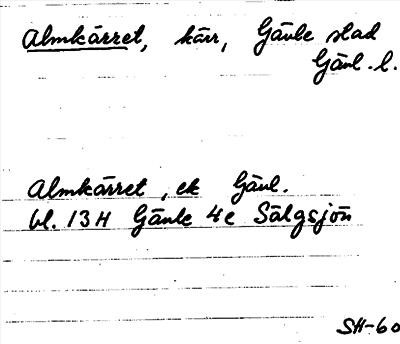 Almkärret, kärr, Gävle stad
Gävl. l.
Almkärret, ek Gävl.
bl. 13H Gävle 4e Sälgsjön
SH-60